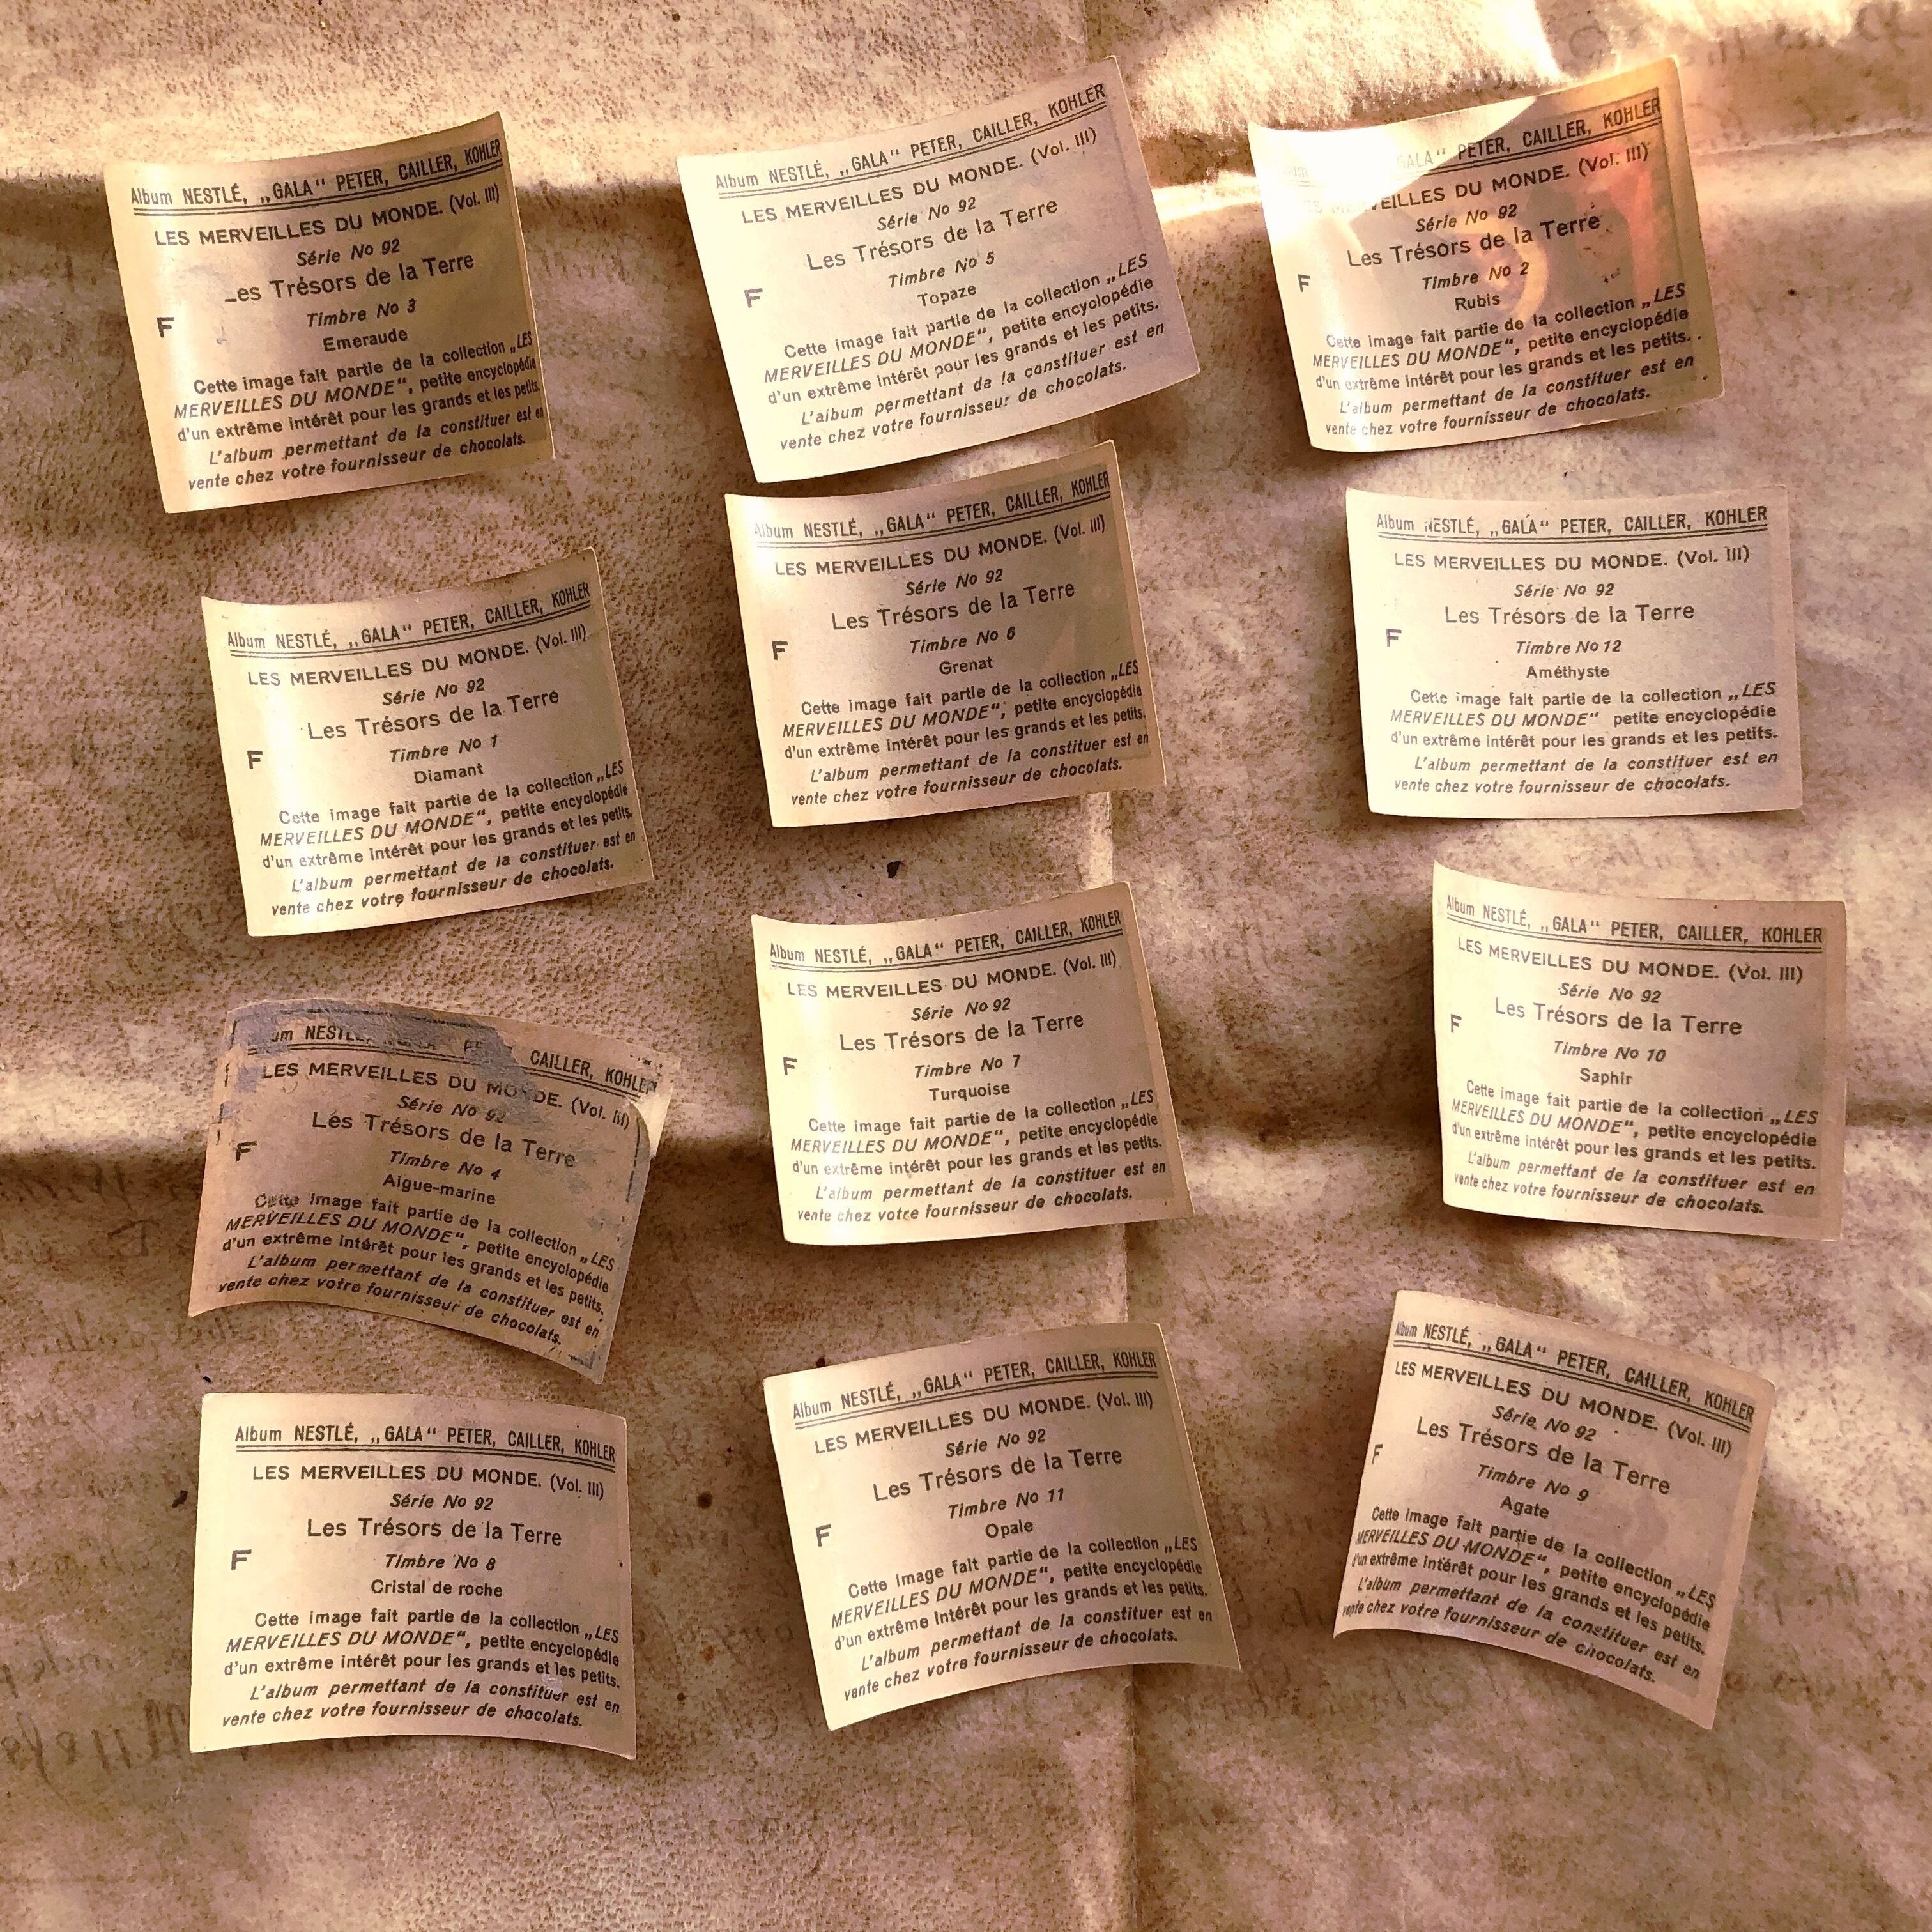 Album NESTLÉ, „GALA“ PETER, CAILLER, KOHLER
LES MERVEILLES DU MONDE. (Vol. III)
Série No 92
es Trésors de la Terre
Timbre No 3
F
Emeraude
Cette image fait partie de la collection „LES
MERVEILLES DU MONDE“, petite encyclopédie
d'un extrême intérêt pour les grands et les petits.
L'album permettant de la constituer est en
vente chez votre fournisseur de chocolats.
Album NESTLÉ, „GALA“ PETER, CAILLER, KOHLER
LES MERVEILLES DU MONDE. (Vol. III)
Série No 92
Les Trésors de la Terre
Timbre No 5
F
Topaze
Cette image fait partie de la collection „LES
MERVEILLES DU MONDE“, petite encyclopédie
d'un extrême intérêt pour les grands et les petits.
L'album permettant de la constituer est en
vente chez votre fournisseur de chocolats.
GALA“ PETER, CAILLER, KOHLER
MERVEILLES DU MONDE. (Vol. III)
Série No 92
Les Trésors de la Terre
Timbre No 2
F
Rubis
Cette image fait partie de la collection „LES
MERVEILLES DU MONDE“, petite encyclopédie
d'un extrême intérêt pour les grands et les petits.
L'album permettant de la constituer est en
vente chez votre fournisseur de chocolats.
Album NESTLÉ, „GALA“ PETER, CAILLER, KOHLER
LES MERVEILLES DU MONDE. (Vol. III)
Série No 92
Les Trésors de la Terre
Timbre No 1
F
Diamant
Cette image fait partie de la collection „LES
MERVEILLES DU MONDE“, petite encyclopédie
d'un extrême intérêt pour les grands et les petits.
L'album permettant de la constituer est en
vente chez votre fournisseur de chocolats.
Album NESTLÉ, „GALA“ PETER, CAILLER, KOHLER
LES MERVEILLES DU MONDE. (Vol. III)
Série No 92
Les Trésors de la Terre
Timbre No 6
F
Grenat
Cette image fait partie de la collection „LES
MERVEILLES DU MONDE“, petite encyclopédie
d'un extrême intérêt pour les grands et les petits.
L'album permettant de la constituer est en
vente chez votre fournisseur de chocolats.
Album NESTLÉ, „GALA“ PETER, CAILLER, KOHLER
LES MERVEILLES DU MONDE. (Vol. III)
Série No 92
Les Trésors de la Terre
F
Timbre No 12
Améthyste
Cette image fait partie de la collection „LES
MERVEILLES DU MONDE“ petite encyclopédie
d'un extrême intérêt pour les grands et les petits.
L'album permettant de la constituer est en
vente chez votre fournisseur de chocolats.
NESTLÉ, CAILLER, KOHLER
LES MERVEILLES DU MONDE. (Vol. III)
Série No 92
Les Trésors de la Terre
F
Timbre No 4
Aigue-marine
Cette image fait partie de la collection „LES
MERVEILLES DU MONDE“, petite encyclopédie
d'un extrême intérêt pour les grands et les petits.
L'album permettant de la constituer est en
vente chez votre fournisseur de chocolats.
Album NESTLÉ, „GALA“ PETER, CAILLER, KOHLER
LES MERVEILLES DU MONDE. (Vol. III)
Série No 92
Les Trésors de la Terre
F
Timbre No 7
Turquoise
Cette image fait partie de la collection „LES
MERVEILLES DU MONDE“, petite encyclopédie
d'un extrême intérêt pour les grands et les petits.
L'album permettant de la constituer est en
vente chez votre fournisseur de chocolats.
Album NESTLÉ, „GALA“ PETER, CAILLER, KOHLER
LES MERVEILLES DU MONDE. (Vol. III)
Série No 92
Les Trésors de la Terre
F
Timbre No 10
Saphir
Cette image fait partie de la collection „LES
MERVEILLES DU MONDE“, petite encyclopédie
d'un extrême intérêt pour les grands et les petits.
L'album permettant de la constituer est en
vente chez votre fournisseur de chocolats.
Album NESTLÉ, „GALA“ PETER, CAILLER, KOHLER
LES MERVEILLES DU MONDE. (Vol. III)
Série No 92
Les Trésors de la Terre
F
Timbre No 8
Cristal de roche
Cette image fait partie de la collection „LES
MERVEILLES DU MONDE“, petite encyclopédie
d'un extrême intérêt pour les grands et les petits.
L'album permettant de la constituer est en
vente chez votre fournisseur de chocolats.
Album NESTLÉ, „GALA“ PETER, CAILLER, KOHLER
LES MERVEILLES DU MONDE. (Vol. III)
Série No 92
Les Trésors de la Terre
Timbre No 11
F
Opale
Cette image fait partie de la collection „LES
MERVEILLES DU MONDE“, petite encyclopédie
d'un extrême intérêt pour les grands et les petits.
L'album permettant de la constituer est en
vente chez votre fournisseur de chocolats.
Album NESTLÉ, „GALA“ PETER, CAILLER, KOHLER
LES MERVEILLES DU MONDE. (Vol. III)
Série No 92
Les Trésors de la Terre
F
Timbre No 9
Agate
Cette image fait partie de la collection „LES
MERVEILLES DU MONDE“, petite encyclopédie
d'un extrême intérêt pour les grands et les petits.
L'album permettant de la constituer est en
vente chez votre fournisseur de chocolats.